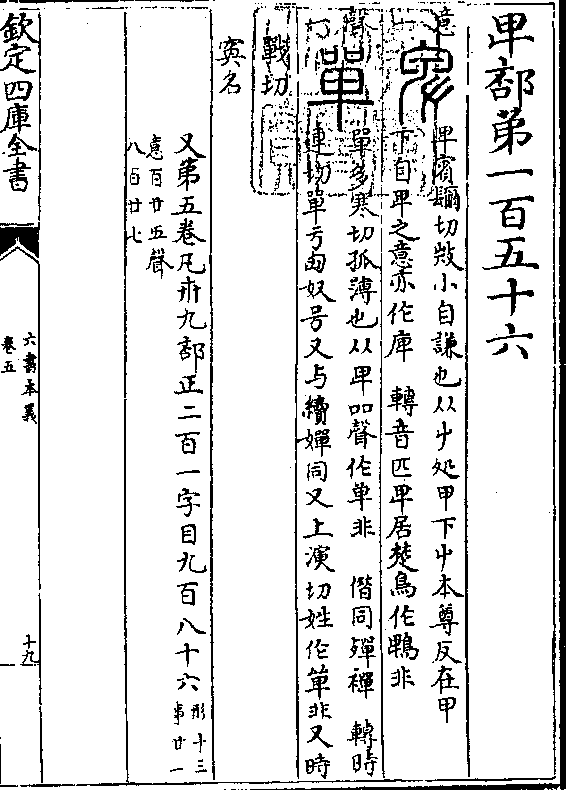 卑部第一百五十六
意
卑賓彌切㪚小自謙也从屮処甲下屮本尊反在甲
下自卑之意亦作庳　轉音匹卑居楚鳥作鵯非
聲
單多寒切孤薄也从卑吅聲作单非　偕同殫襌　轉時
連切單亏匈奴号又与纘嬋同又上演切姓作单非又時
戰切
寅名
又第五卷凡卅九部正二百一字目九百八十六形十三
事廿一
意百廿五聲
八百廿七
欽定四庫全書
六書本義
卷五
十九